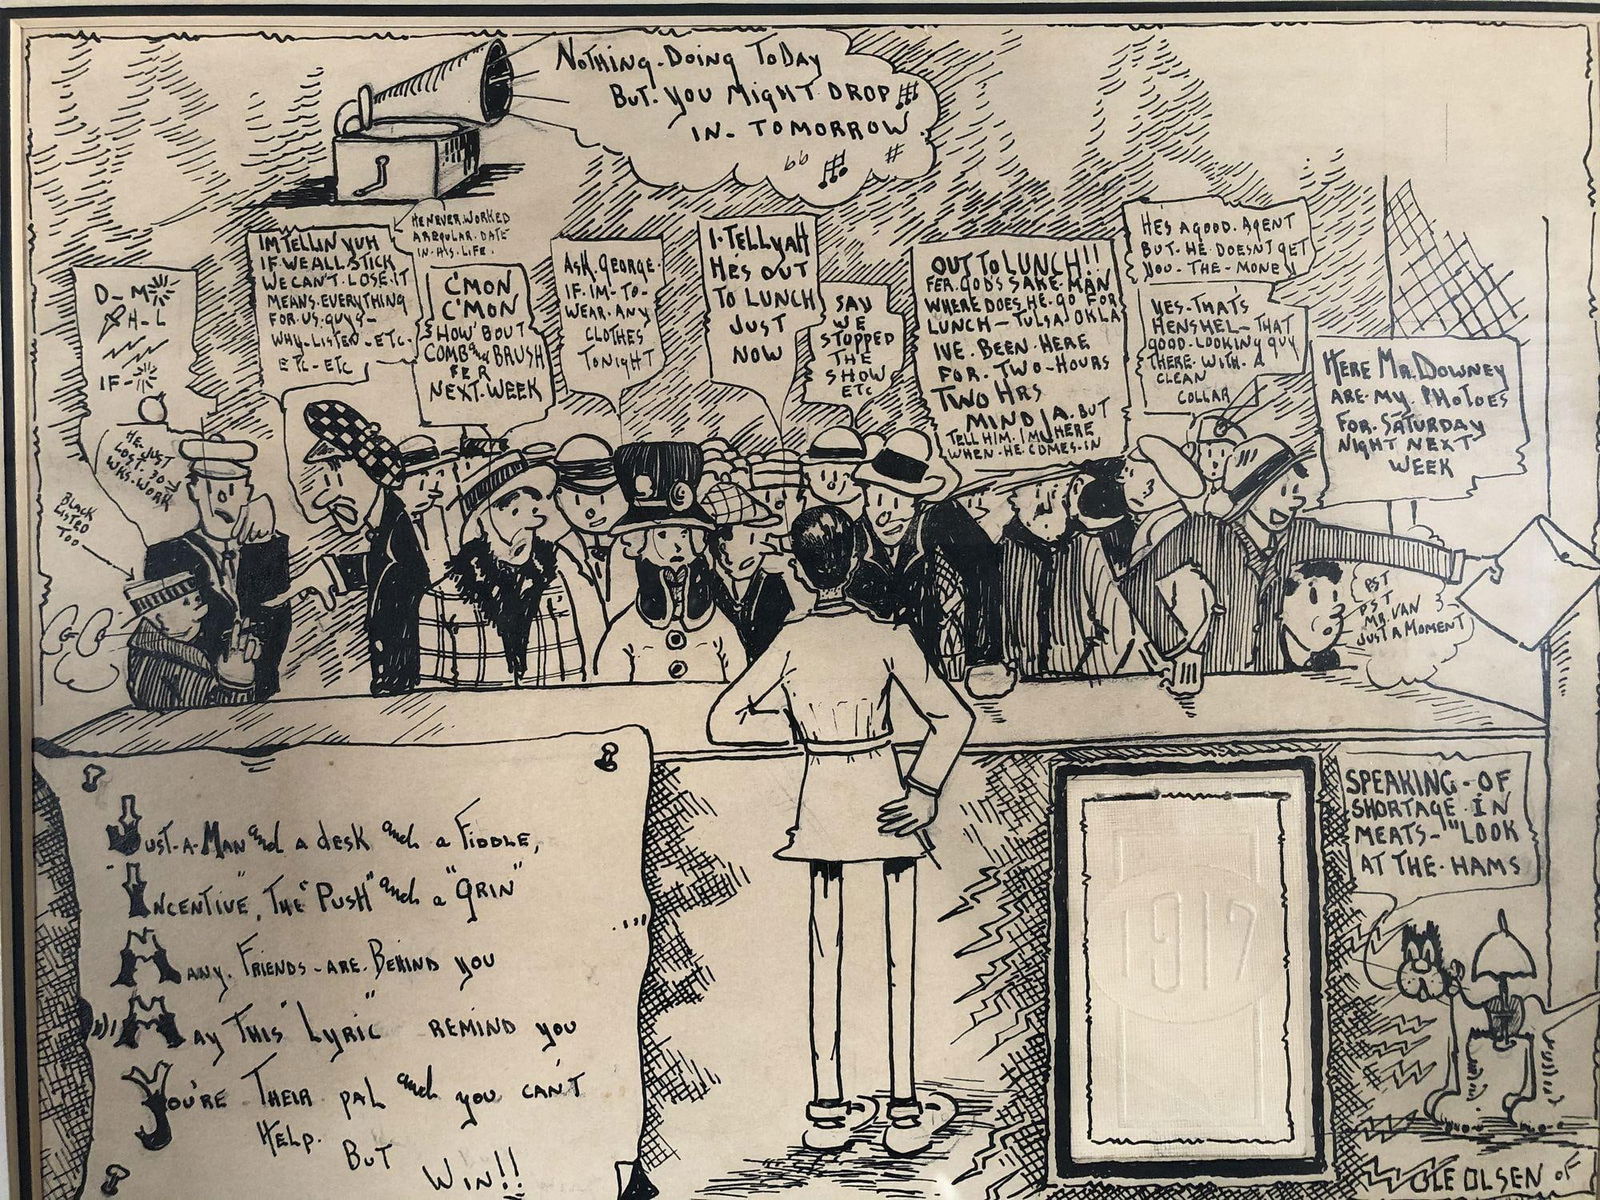 NOTHING-DOING TODAY
BUT. YOU MIGHT DROP
IN- TOMORROW.
HE NEVER WORKED
A REGULAR DATE
IN HIS LIFE.
D- M-
H-L
IF-
HE JUST
LOST 30
WKS. WORK
BLACK
LISTED
TOO
IM TELLIN YUH
IF WE ALL STICK
WE CAN'T LOSE. IT
MEANS EVERYTHING
FOR US GUYS-
WHY-LISTEN-ETC.
ETC-ETC
C'MON
C'MON
HOW'BOUT
COMB and BRUSH
FER
NEXT WEEK
ASK. GEORGE.
IF-IM-TO-
WEAR. ANY
CLOTHES
TONIGHT
I-TELL YAH
HE'S OUT
TO LUNCH
JUST
NOW
SAY
WE
STOPPED
THE
SHOW
ETC
OUT TO LUNCH!!
FER GODS SAKE MAN
WHERE DOES HE GO FOR
LUNCH-TULSA OKLA
IVE. BEEN HERE
FOR. TWO-HOURS
TWO HRS
MIND JA. BUT
TELL HIM. IM HERE
WHEN-HE COMES-IN
HES A GOOD. AGENT
BUT. HE DOESNT GET
YOU-THE-MONEY
YES-THAT'S
HENSHEL-THAT
GOOD-LOOKING GUY
THERE WITH. A
CLEAN
COLLAR
HERE MR. DOWNEY
ARE-MY. PHOTOES
FOR. SATURDAY
NIGHT NEXT
WEEK
PST
PST
MR. VAN
JUST A MOMENT
JUST-A-MAN and A DESK and A FIDDLE,
INCENTIVE", THE "PUSH" and A "GRIN"
MANY. FRIENDS-ARE. BEHIND YOU
MAY THIS "LYRIC" REMIND YOU
YOU'RE THEIR PAL and YOU CAN'T
HELP.
BUT
WIN!!
1917
SPEAKING-OF
SHORTAGE IN
MEATS-"LOOK
AT THE-HAMS
OLE OLSEN OF